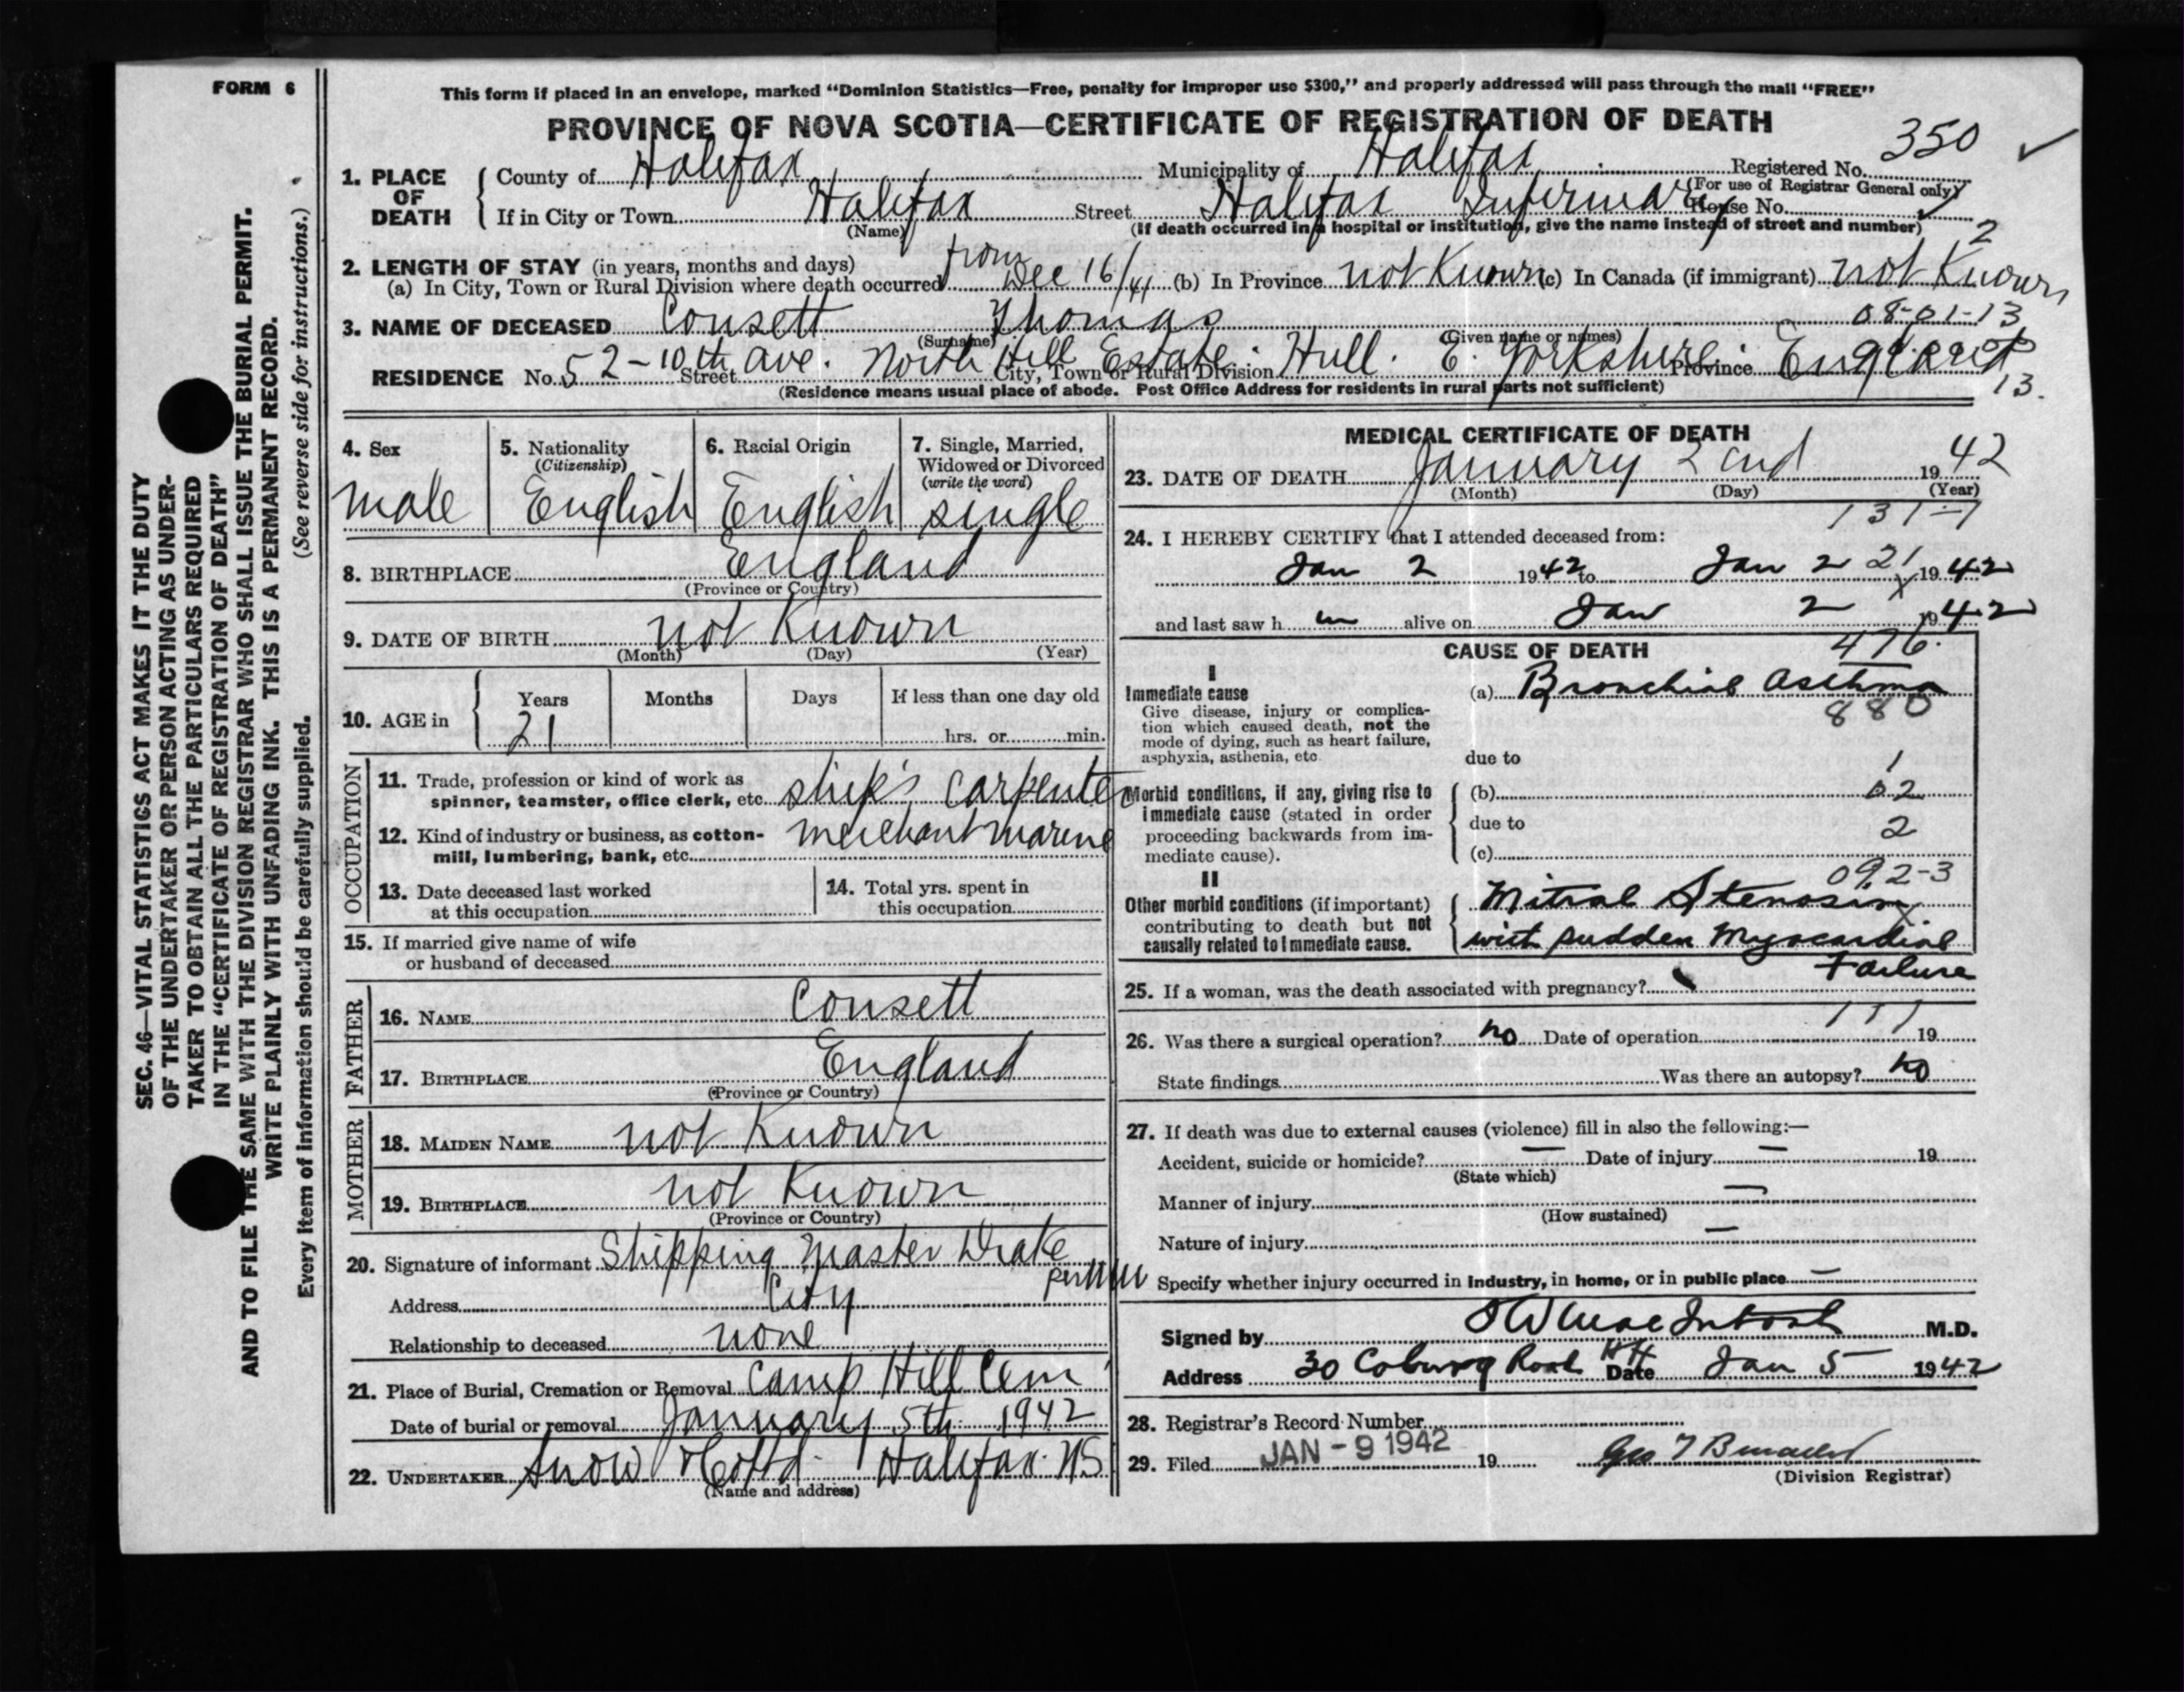 FORM 6
This form if placed in an envelope, marked "Dominion Statistics—Free, penalty for improper use $300," and properly addressed will pass through the mail "FREE"
PROVINCE OF NOVA SCOTIA—CERTIFICATE OF REGISTRATION OF DEATH
350
1. PLACE OF DEATH
County of Halifax Municipality of Halifax Registered No.
(For use of Registrar General only)
If in City or Town Halifax Street Halifax Infirmary House No.
(Name) (If death occurred in a hospital or institution, give the name instead of street and number) 2
2. LENGTH OF STAY (in years, months and days)
(a) In City, Town or Rural Division where death occurred from Dec 16/41 (b) In Province not Known (c) In Canada (if immigrant) not Known
08-01-13
3. NAME OF DECEASED Consett Thomas
(Surname) (Given name or names)
RESIDENCE No. 52-10th Street ave. North Hull Estate City, Town or Rural Division Hull. E. Yorkshire Province England
(Residence means usual place of abode. Post Office Address for residents in rural parts not sufficient) 13.
4. Sex male
5. Nationality (Citizenship) English
6. Racial Origin English
7. Single, Married, Widowed or Divorced (write the word) single
8. BIRTHPLACE England
(Province or Country)
9. DATE OF BIRTH not Known
(Month) (Day) (Year)
10. AGE in Years 21 Months Days If less than one day old
hrs. or min.
OCCUPATION
11. Trade, profession or kind of work as spinner, teamster, office clerk, etc. ship's carpenter
12. Kind of industry or business, as cotton-mill, lumbering, bank, etc. merchant marine
13. Date deceased last worked at this occupation
14. Total yrs. spent in this occupation
15. If married give name of wife or husband of deceased
FATHER
16. NAME Consett
17. BIRTHPLACE England
(Province or Country)
MOTHER
18. MAIDEN NAME not Known
19. BIRTHPLACE not Known
(Province or Country)
20. Signature of informant Shipping Master Drake
per
Address City
Relationship to deceased none
21. Place of Burial, Cremation or Removal Camp Hill Cem
Date of burial or removal January 5th 1942
22. UNDERTAKER Snow & Co Ltd. Halifax. NS
(Name and address)
MEDICAL CERTIFICATE OF DEATH
23. DATE OF DEATH January 2nd 1942
(Month) (Day) (Year)
131-7
24. I HEREBY CERTIFY that I attended deceased from:
Jan 2 1942 to Jan 2 21 1942
and last saw h im alive on Jan 2 1942
CAUSE OF DEATH 476
I
Immediate cause
Give disease, injury or complication which caused death, not the mode of dying, such as heart failure, asphyxia, asthenia, etc.
(a) Bronchial Asthma
880
due to
1
Morbid conditions, if any, giving rise to immediate cause (stated in order proceeding backwards from immediate cause).
(b) 02
due to
2
(c)
II
092-3
Other morbid conditions (if important) contributing to death but not causally related to immediate cause.
Mitral Stenosis
with sudden Myocardial
Failure
25. If a woman, was the death associated with pregnancy?
111
26. Was there a surgical operation? no Date of operation 19
State findings Was there an autopsy? no
27. If death was due to external causes (violence) fill in also the following:—
Accident, suicide or homicide? — Date of injury — 19
(State which)
Manner of injury —
(How sustained)
Nature of injury —
Specify whether injury occurred in industry, in home, or in public place —
Signed by MacIntosh M.D.
Address 30 Coburg Road Hfx Date Jan 5 1942
28. Registrar's Record Number
29. Filed JAN -9 1942 19
(Division Registrar)
SEC. 46—VITAL STATISTICS ACT MAKES IT THE DUTY
OF THE UNDERTAKER OR PERSON ACTING AS UNDER-
TAKER TO OBTAIN ALL THE PARTICULARS REQUIRED
IN THE "CERTIFICATE OF REGISTRATION OF DEATH"
AND TO FILE THE SAME WITH THE DIVISION REGISTRAR WHO SHALL ISSUE THE BURIAL PERMIT.
WRITE PLAINLY WITH UNFADING INK. THIS IS A PERMANENT RECORD.
Every item of information should be carefully supplied. (See reverse side for instructions.)